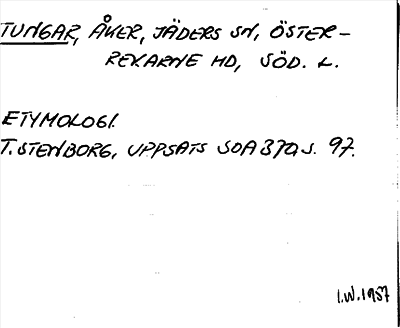 TUNGAR, ÅKER, JÄDERS SN, ÖSTER-
REKARNE HD, SÖD. L.
ETYMOLOGI.
T. STENBORG, UPPSATS SOA 370 S. 97.
I.W. 1957